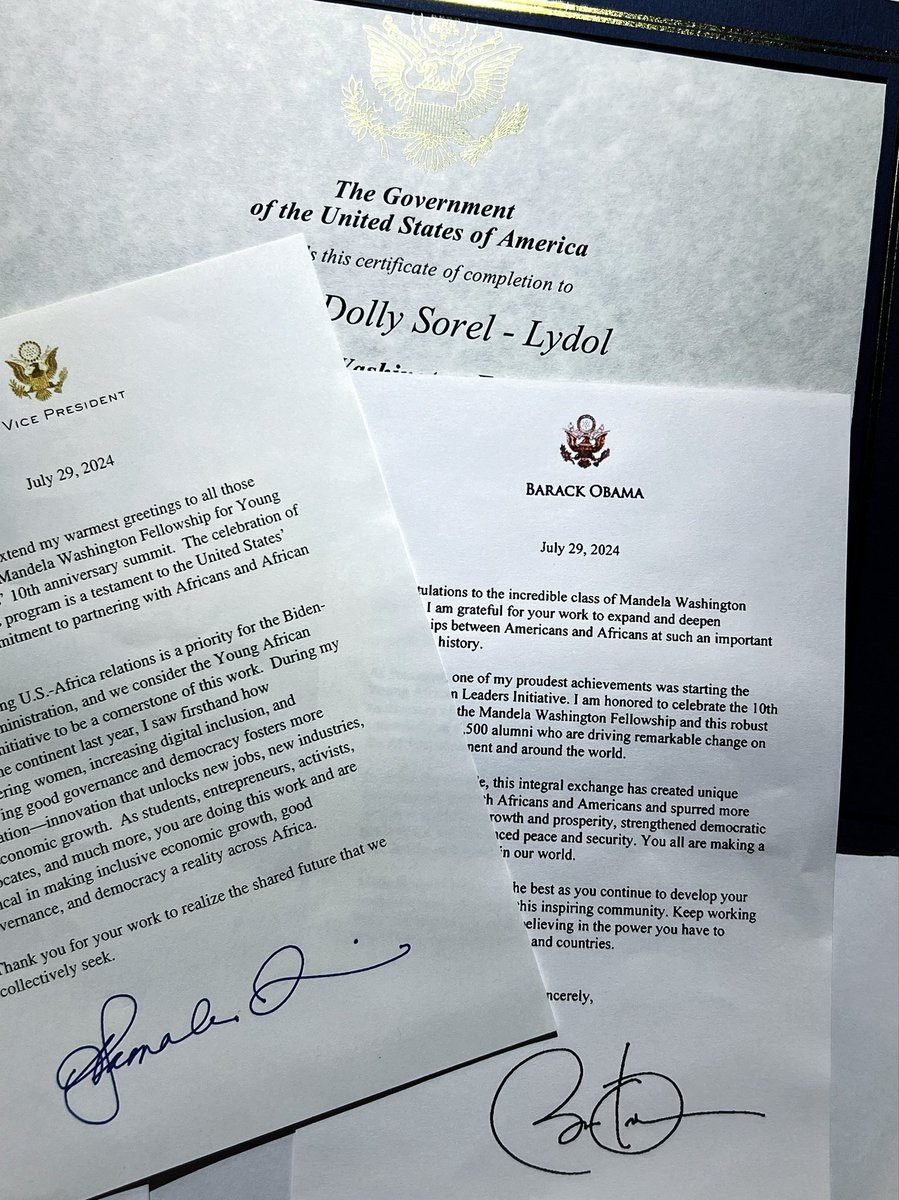 The Government
of the United States of America
s this certificate of completion to
Dolly Sorel - Lydol
VICE PRESIDENT
July 29, 2024
xtend my warmest greetings to all those
Mandela Washington Fellowship for Young
' 10th anniversary summit. The celebration of
program is a testament to the United States'
mitment to partnering with Africans and African
ng U.S.-Africa relations is a priority for the Biden-
ministration, and we consider the Young African
nitiative to be a cornerstone of this work. During my
he continent last year, I saw firsthand how
ering women, increasing digital inclusion, and
ing good governance and democracy fosters more
ation—innovation that unlocks new jobs, new industries,
conomic growth. As students, entrepreneurs, activists,
ocates, and much more, you are doing this work and are
ical in making inclusive economic growth, good
vernance, and democracy a reality across Africa.
Thank you for your work to realize the shared future that we
collectively seek.
BARACK OBAMA
July 29, 2024
tulations to the incredible class of Mandela Washington
I am grateful for your work to expand and deepen
ips between Americans and Africans at such an important
history.
one of my proudest achievements was starting the
n Leaders Initiative. I am honored to celebrate the 10th
the Mandela Washington Fellowship and this robust
,500 alumni who are driving remarkable change on
nent and around the world.
e, this integral exchange has created unique
h Africans and Americans and spurred more
rowth and prosperity, strengthened democratic
nced peace and security. You all are making a
in our world.
he best as you continue to develop your
his inspiring community. Keep working
elieving in the power you have to
and countries.
ncerely,